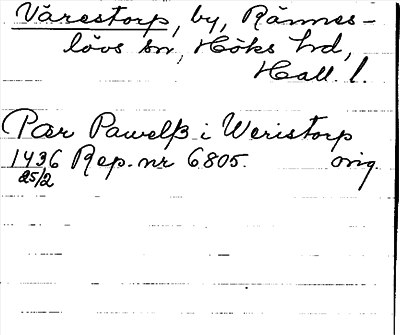 Vårestorp, by, Rännes-
lövs sn, Höks hd,
Hall. l.
Pær Pawelß i Weristorp
1436 Rep. nr 6805. orig.
25/2